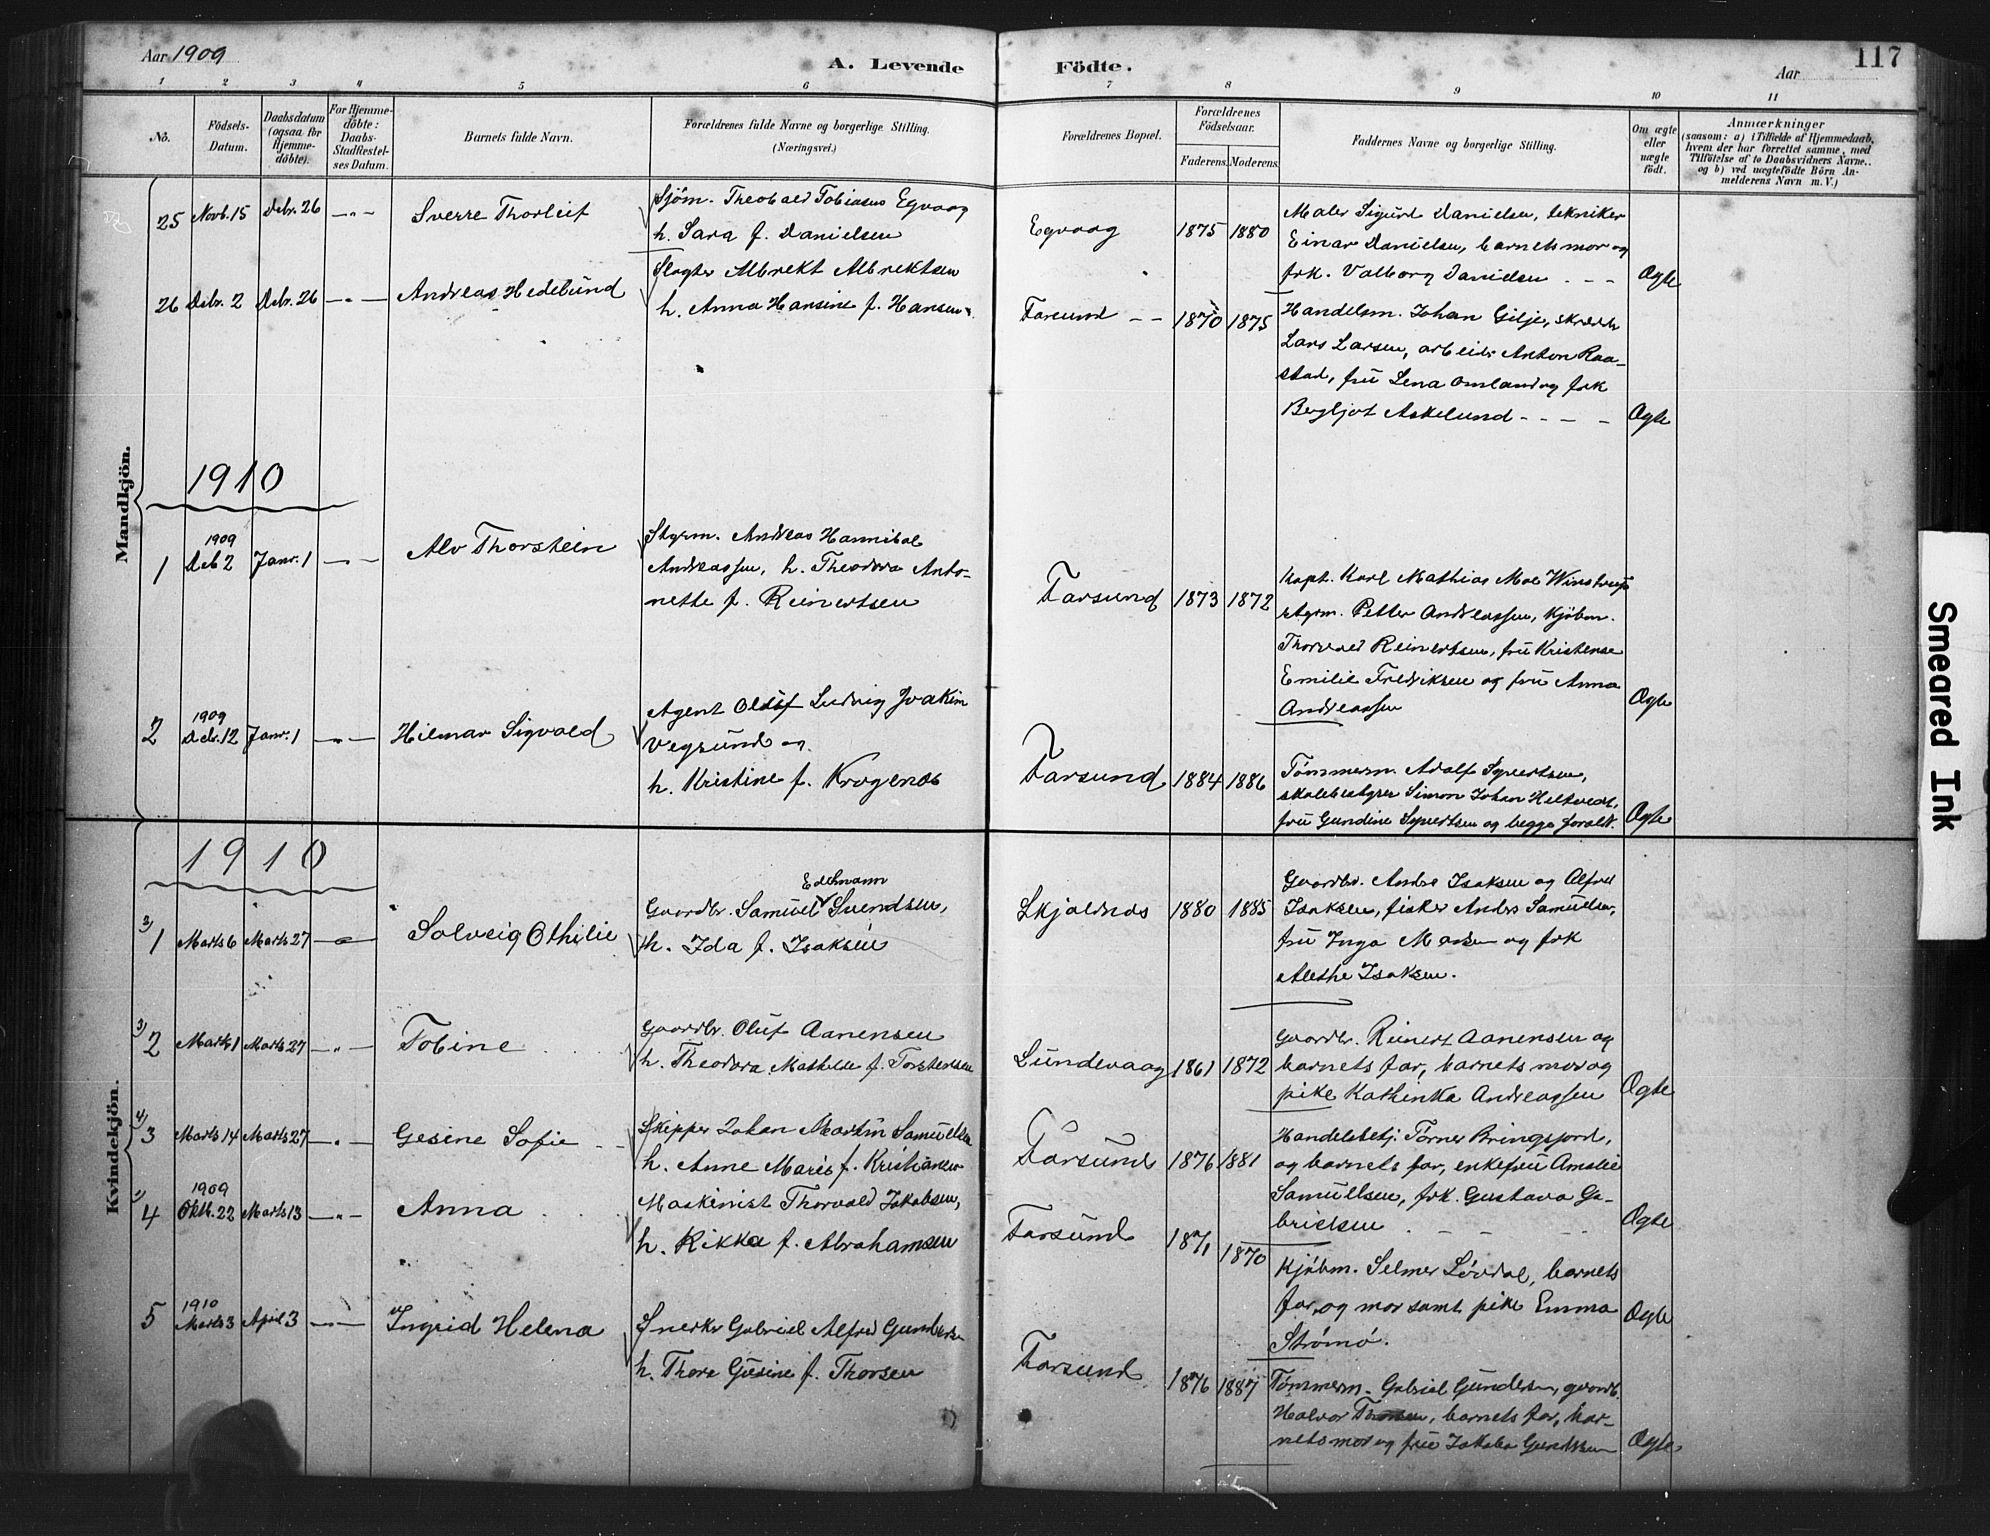 Aar 1909
A. Levende
Födte.
Aar
117
1 2 3 4 5 6 7 8 9 10 11
No.
Födsels-
Datum.
Daabsdatum
(ogsaa for
Hjemme-
döbte).
For Hjemme-
döbte:
Daabs-
Barnets fulde Navn.
Forældrenes fulde Navne og borgerlige Stilling.
(Næringsvei.)
Forældrenes Bopæl.
Forældrenes
Födselsaar.
Faderens. Moderens.
Faddernes Navne og borgerlige Stilling.
Om ægte
eller
uægte
födt.
Anmærkninger
(saasom: a) i Tilfælde af Hjemmedaab,
hvem der har forrettet samme, med
Tilföielse af to Daabsvidners Navne..
og b) ved uægtefödte Börn An-
melderens Navn m. V.)
Mandkjön.
25 Novb. 15 Debr. 26 -"- Sverre Thorleif
Sjöm. Theobald Tobiasus Egvaag
h. Sara f. Danielsen
Egvaag 1875 1880
Maler Sigurd Danielsen, tekniker
Einar Danielsen, barnets mor og
frk. Valborg Danielsen - - -
Ægte
26 Debr. 2 Debr. 26 -"- Andreas Hedelund
Slagter Albrekt Albrektsen
h. Anna Hansine f. Hansen.
Farsund -- 1870 1875
Handelsm. Johan Gilje, skrædder
Lars Larsen, arbeider Anton Raa-
stad, fru Lena Omland og frk
Bergljot Askelund - - - -
Ægte
1910
1 1909 Deb 2 Janr. 1 -"- Alv Thorstein
Styrm. Andreas Hannibal
Andreassen, h. Theodora Anto-
nette f. Reinertsen
Farsund 1873 1872
Kapt. Karl Mathias Moe Winstrup
styrm. Petter Andreassen, kjöbm.
Thorvald Reinertsen, fru Kristense
Emilie Fredriksen og fru Anna
Andreassen
Ægte
2 1909 Debr. 12 Janr. 1 -"- Hilmar Sigvald
Agent Oluf Ludvig Joakim
Vegsund og
h. Kristine f. Krogenes
Farsund 1884 1886
Tømmerm. Adolf Syvertsen,
skolebestyrer Simon Johan Heltvedt,
fru Gundine Syvertsen og begge foraldr.
Ægte
Kvindekjön.
1910
3/1 Marts 6 Marts 27 -"- Solveig Othilie
Edelmann
Gaardbr. Samuel Svendsen,
h. Ida f. Isaksen
Skjoldnes 1880 1885
Gaardbr. Andre Isaksen og Alfred
Isaksen, fisker Andrs Samuelsen,
fru Inga Monsen og frk
Alethe Isaksen.
3/2 Marts 1 Marts 27 -"- Tobine
Gaardbr. Oluf Aanensen
h. Theodora Mathilde f. Torstensen
Lundevaag 1861 1872
Gaardbr. Reinert Aanensen og
barnets far, barnets mor og
pike Kathinka Andreassen
Ægte
4/3 Marts 14 Marts 27 -"- Gesine Sofie
Skipper Johan Martin Samuelsen
h. Anne Marie f. Kristiansen
Farsund 1876 1881
Handelsbetj. Tørnes Bringsjord,
og barnets far, enkefru Amalie
Samuelsen, frk. Gustava Ga-
brielsen
Ægte
1/4 1909 Oktb. 22 Marts 13 -"- Anna
Maskinist Thorvald Jakobsen,
h. Rikka f. Abrahamsen
Farsund 1871 1870
Kjöbm. Selmer Lövdal, barnets
far og mor samt pike Emma
Strömö.
Ægte
5 1910 Marts 3 April 3 -"- Ingrid Helena
Snerker Gabriel Alfred Gundersen
h. Thora Gesine f. Thorsen
Farsund 1876 1887
Tömmerm. Gabriel Gundersen, gaardbr.
Halvor Thorsen, barnets far, bar-
nets mor og frue Jakoba Gundersen
Ægte.
Smeared Ink